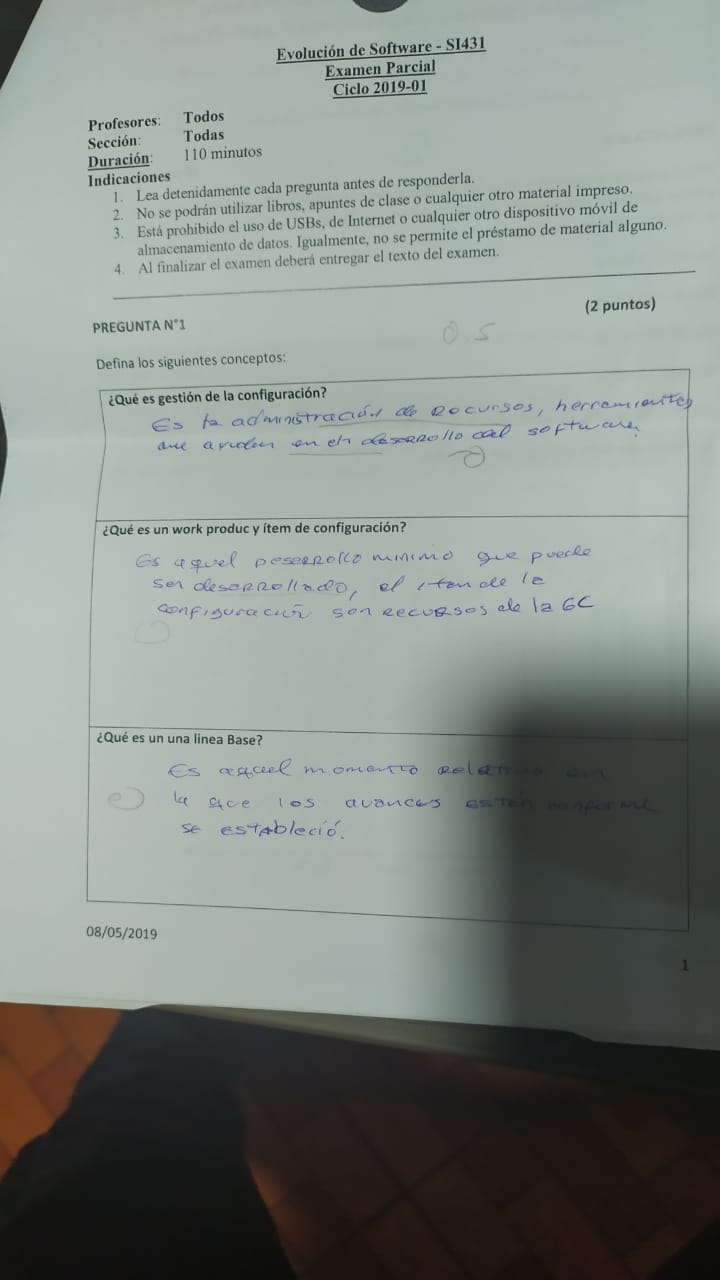 Evolución de Software - SI431
Examen Parcial
Ciclo 2019-01
Profesores: Todos
Sección: Todas
Duración: 110 minutos
Indicaciones
1. Lea detenidamente cada pregunta antes de responderla.
2. No se podrán utilizar libros, apuntes de clase o cualquier otro material impreso.
3. Está prohibido el uso de USBs, de Internet o cualquier otro dispositivo móvil de
almacenamiento de datos. Igualmente, no se permite el préstamo de material alguno.
4. Al finalizar el examen deberá entregar el texto del examen.
(2 puntos)
PREGUNTA N°1
0.5
Defina los siguientes conceptos:
¿Qué es gestión de la configuración?
Es la administración de recursos, herramientas
que ayuden en el desarrollo del software.
¿Qué es un work produc y ítem de configuración?
Es aquel desarrollo minimo que puede
ser desarrollado, el item de la
configuración son recursos de la GC
¿Qué es un una linea Base?
Es aquel momento relativo en
la que los avances estén conforme
se estableció.
08/05/2019
1